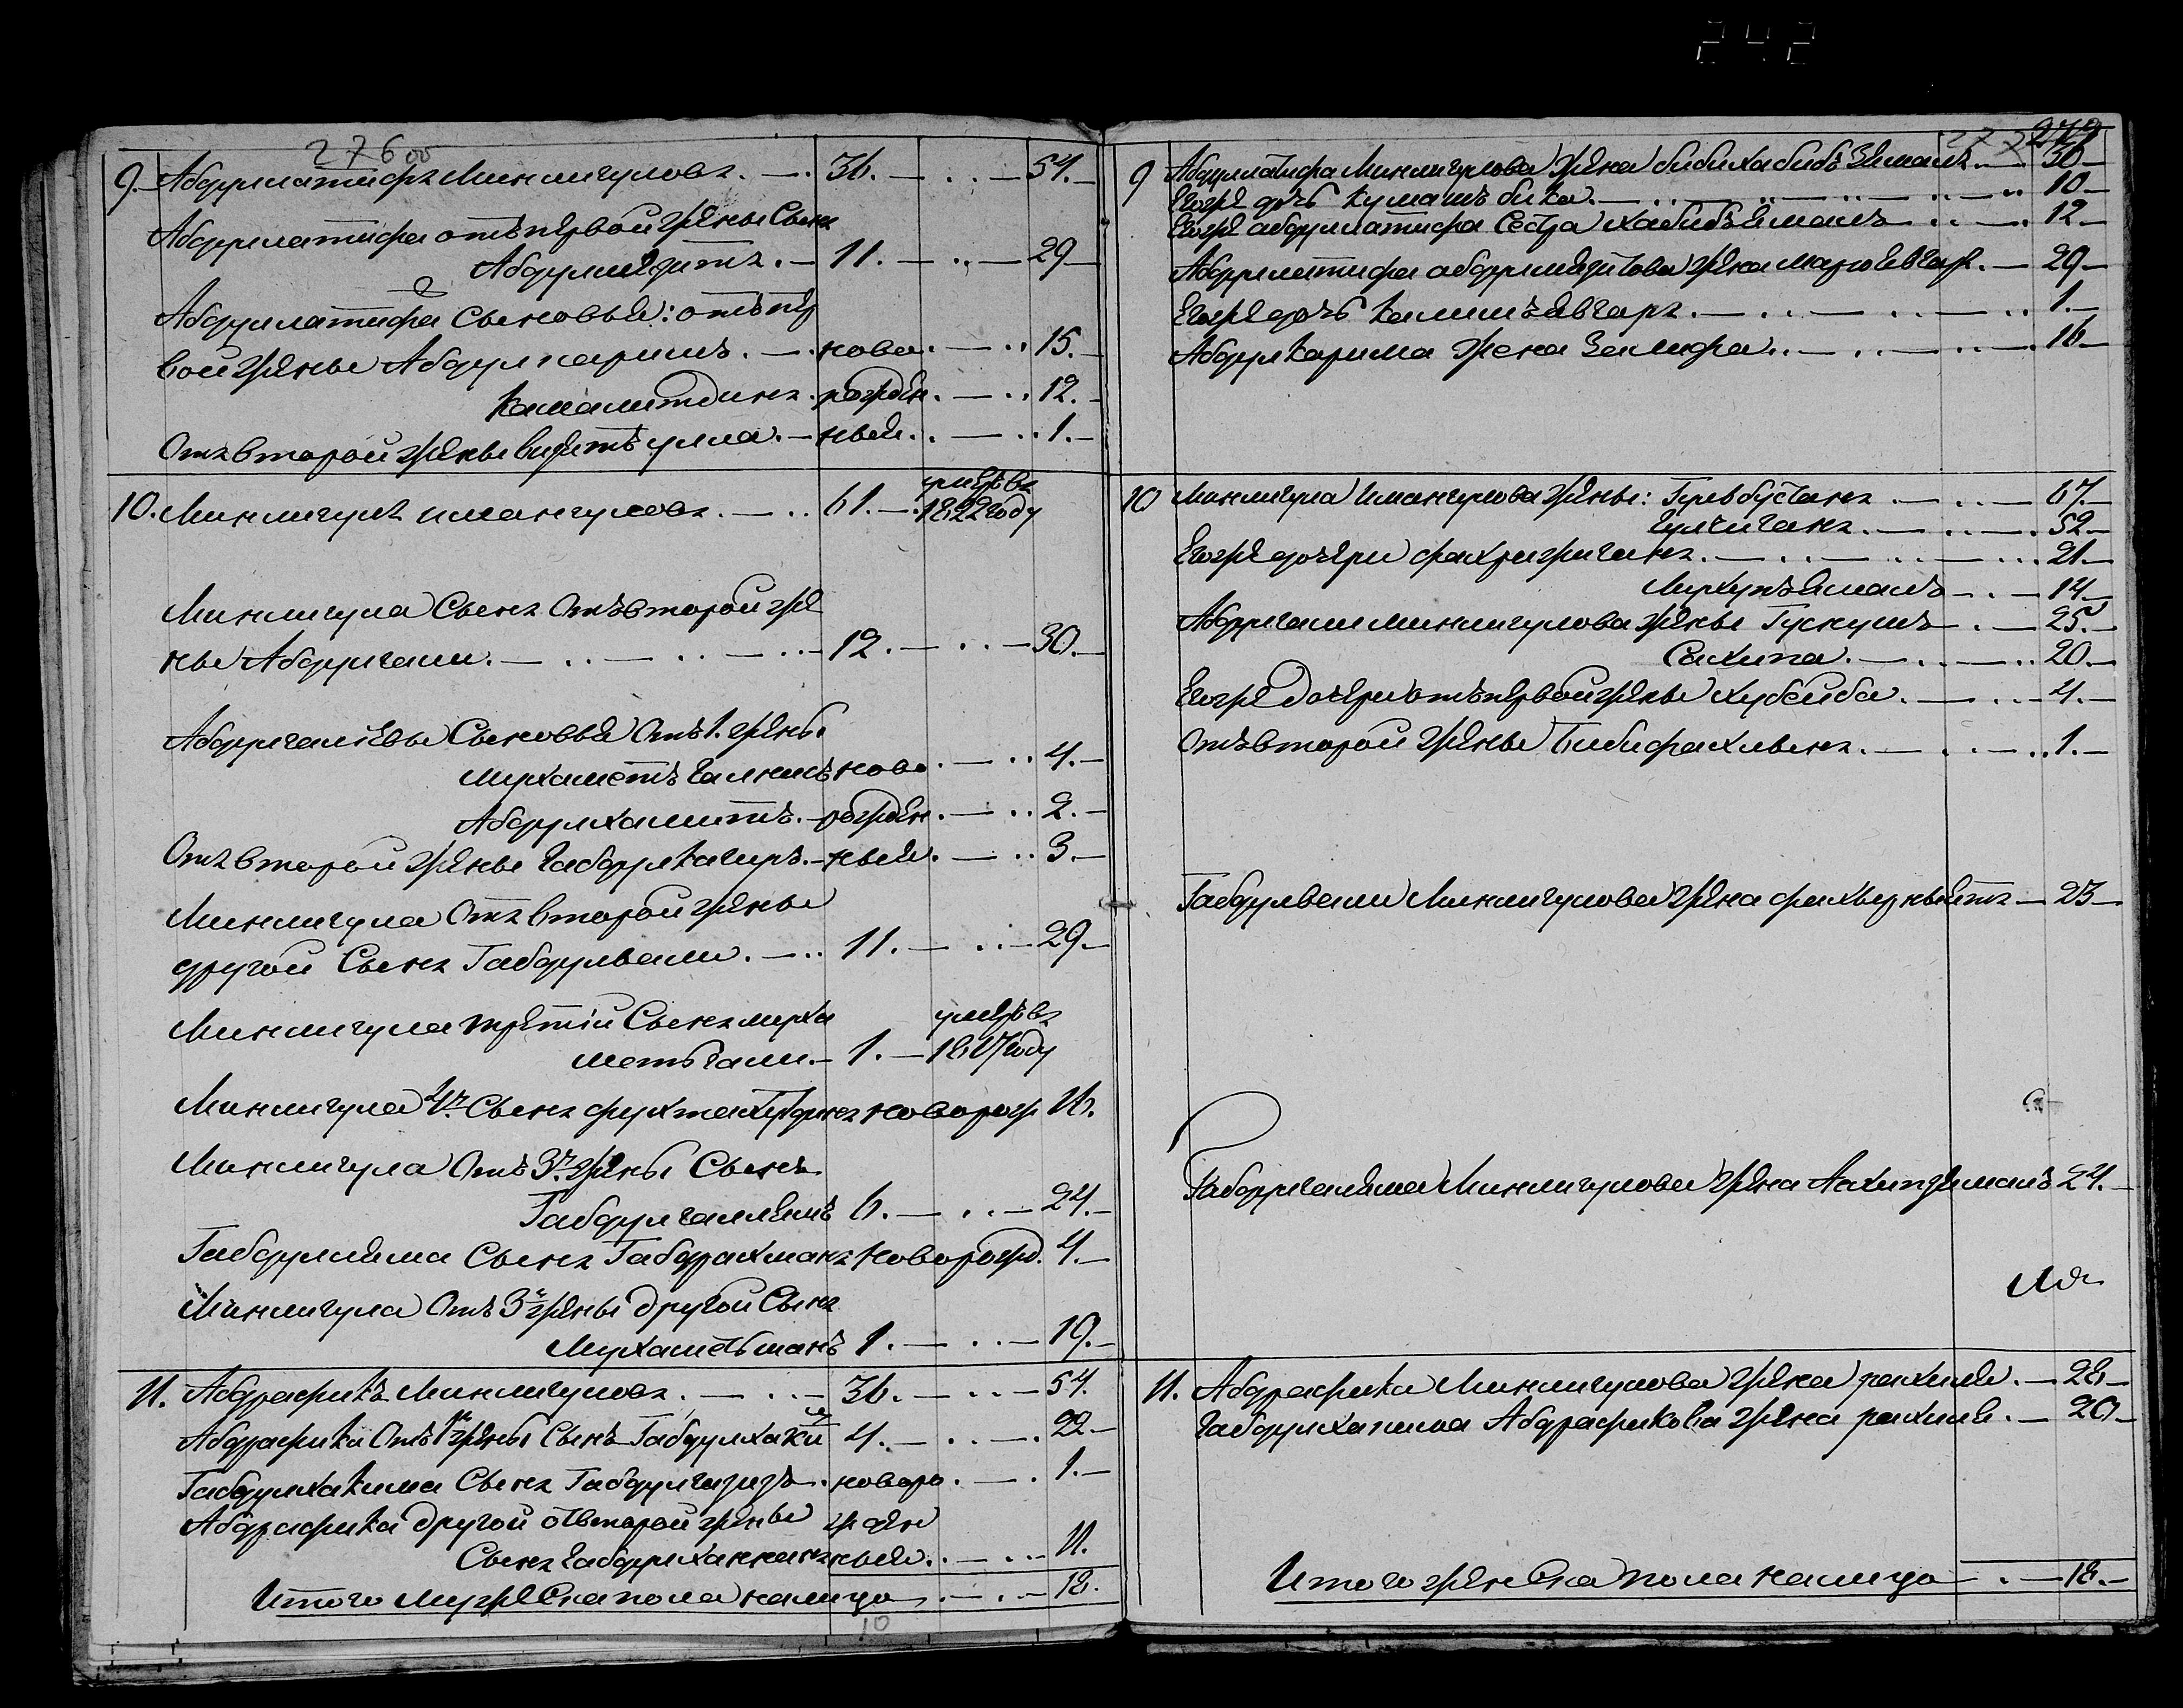 242
276 об
9. Абдуллатифъ Минлигуловъ. 36. 54.
Абдуллатифа отъ первой жены Сынъ
Абдулмязитъ. 11. 29
Абдуллатифа Сыновья: отъ пер
вой жены Абдулкаримъ. ново 15.
Камалитдинъ. рожден 12.
Отъ второй жены Визятъулла. ныя. 1.
10. Минлигулъ имангуловъ. 61. умеръ въ
1822 году
Минлигула Сынъ Отъ второй же
ны Абдулгали. 12. 30.
Абдулгалiевы Сыновья Отъ 1. жены
Мухаметъ ново 4.
Абдулхамитъ. рожден. 2.
Отъ второй жены Габдулкагиръ. ныя. 3.
Минлигула Отъ второй жены
другой Сынъ Габдулвали. 11. 29.
Минлигула третiй Сынъ муха
метъгали. 1. умеръ въ
18 году
Минлигула 4й Сынъ новорож 16.
Минлигула Отъ 3й жены Сынъ
Габдулгаллямъ 6. 24.
Габдулляма Сынъ Габдрахманъ новорожд. 4.
Минлигула Отъ 3й жены другой Сынъ
Мухаметьшанъ 1. 19.
11. Абдрафикъ Минлигуловъ. 36. 54.
Абдрафика Отъ 1й жены Сынъ Габдулхаки 4. 22
Габдулхакима Сынъ Габдулгазизъ. новоро 1.
Абдрафика другой от второй жены жден
Сынъ Габдулханнанъ ныя. 11.
Итого Мужеска пола налицо 18.
10
277
9 Абдуллатифа Минлигулова жена бибихабибъ Земалъ 36
Ихже дочь Кумашъ бика. 10
Егоже абдуллатифа Сестра хабибъямалъ 12
Абдуллатифа абдулмязитова жена 29
Егоже дочь Камилъявгаръ. 1.
Абдулкарима жена Зялифа. 16
10 Минлигула имангулова жены: Гульбустанъ 67.
Гулчиганъ. 52
Егоже дочери фахригиганъ. 21.
14
Абдулгали минлигулова жены Гускушъ 25.
Сахипа. 20.
Егоже Дочери отъ первой жены хубейба. 4.
Отъ второй жены 1.
Габдулвали Минлигулова жена 23
Габдулгаляма Минлигулова жена 24.
11. Абдрафика Минлигулова жена рахиля. 28
Габдулхакима Абдрафикова жена рахиля. 20
Итого женска пола налицо 18.